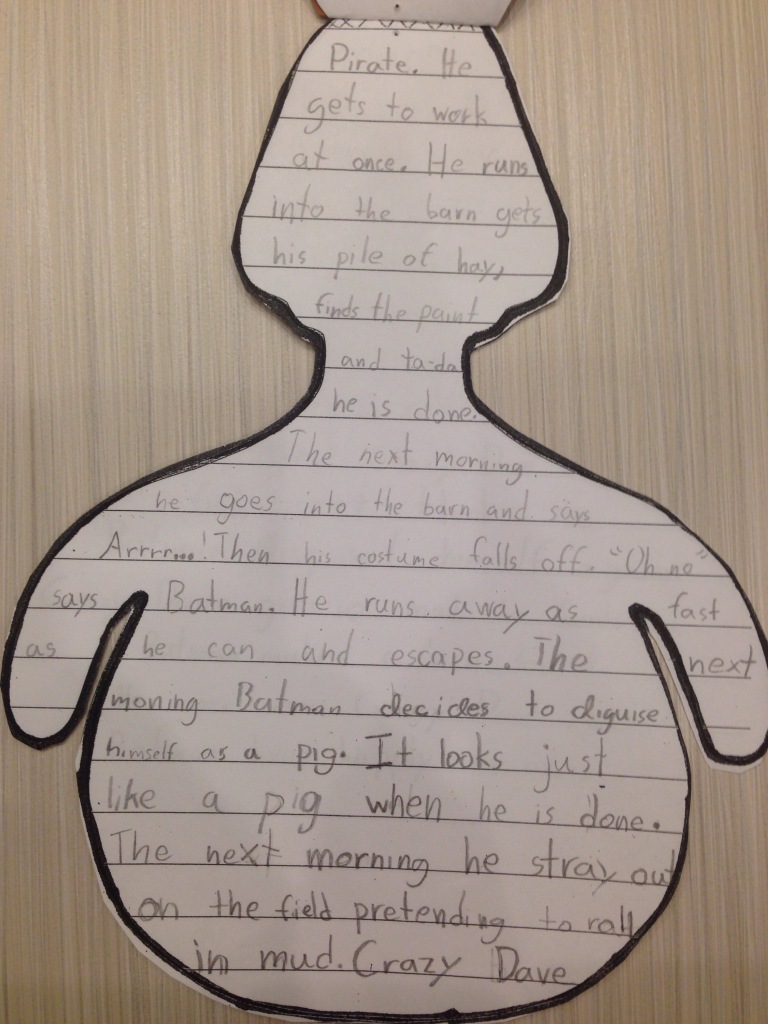 Pirate. He
gets to work
at once. He runs
into the barn gets
his pile of hay,
finds the paint
and ta-da
he is done.
The next morning
he goes into the barn and says
Arrrr...! Then his costume falls off. "Oh no"
says Batman. He runs away as fast
as he can and escapes. The next
moning Batman decides to diguise
himself as a pig. It looks just
like a pig when he is done.
The next morning he stray out
on the field pretending to roll
in mud. Crazy Dave